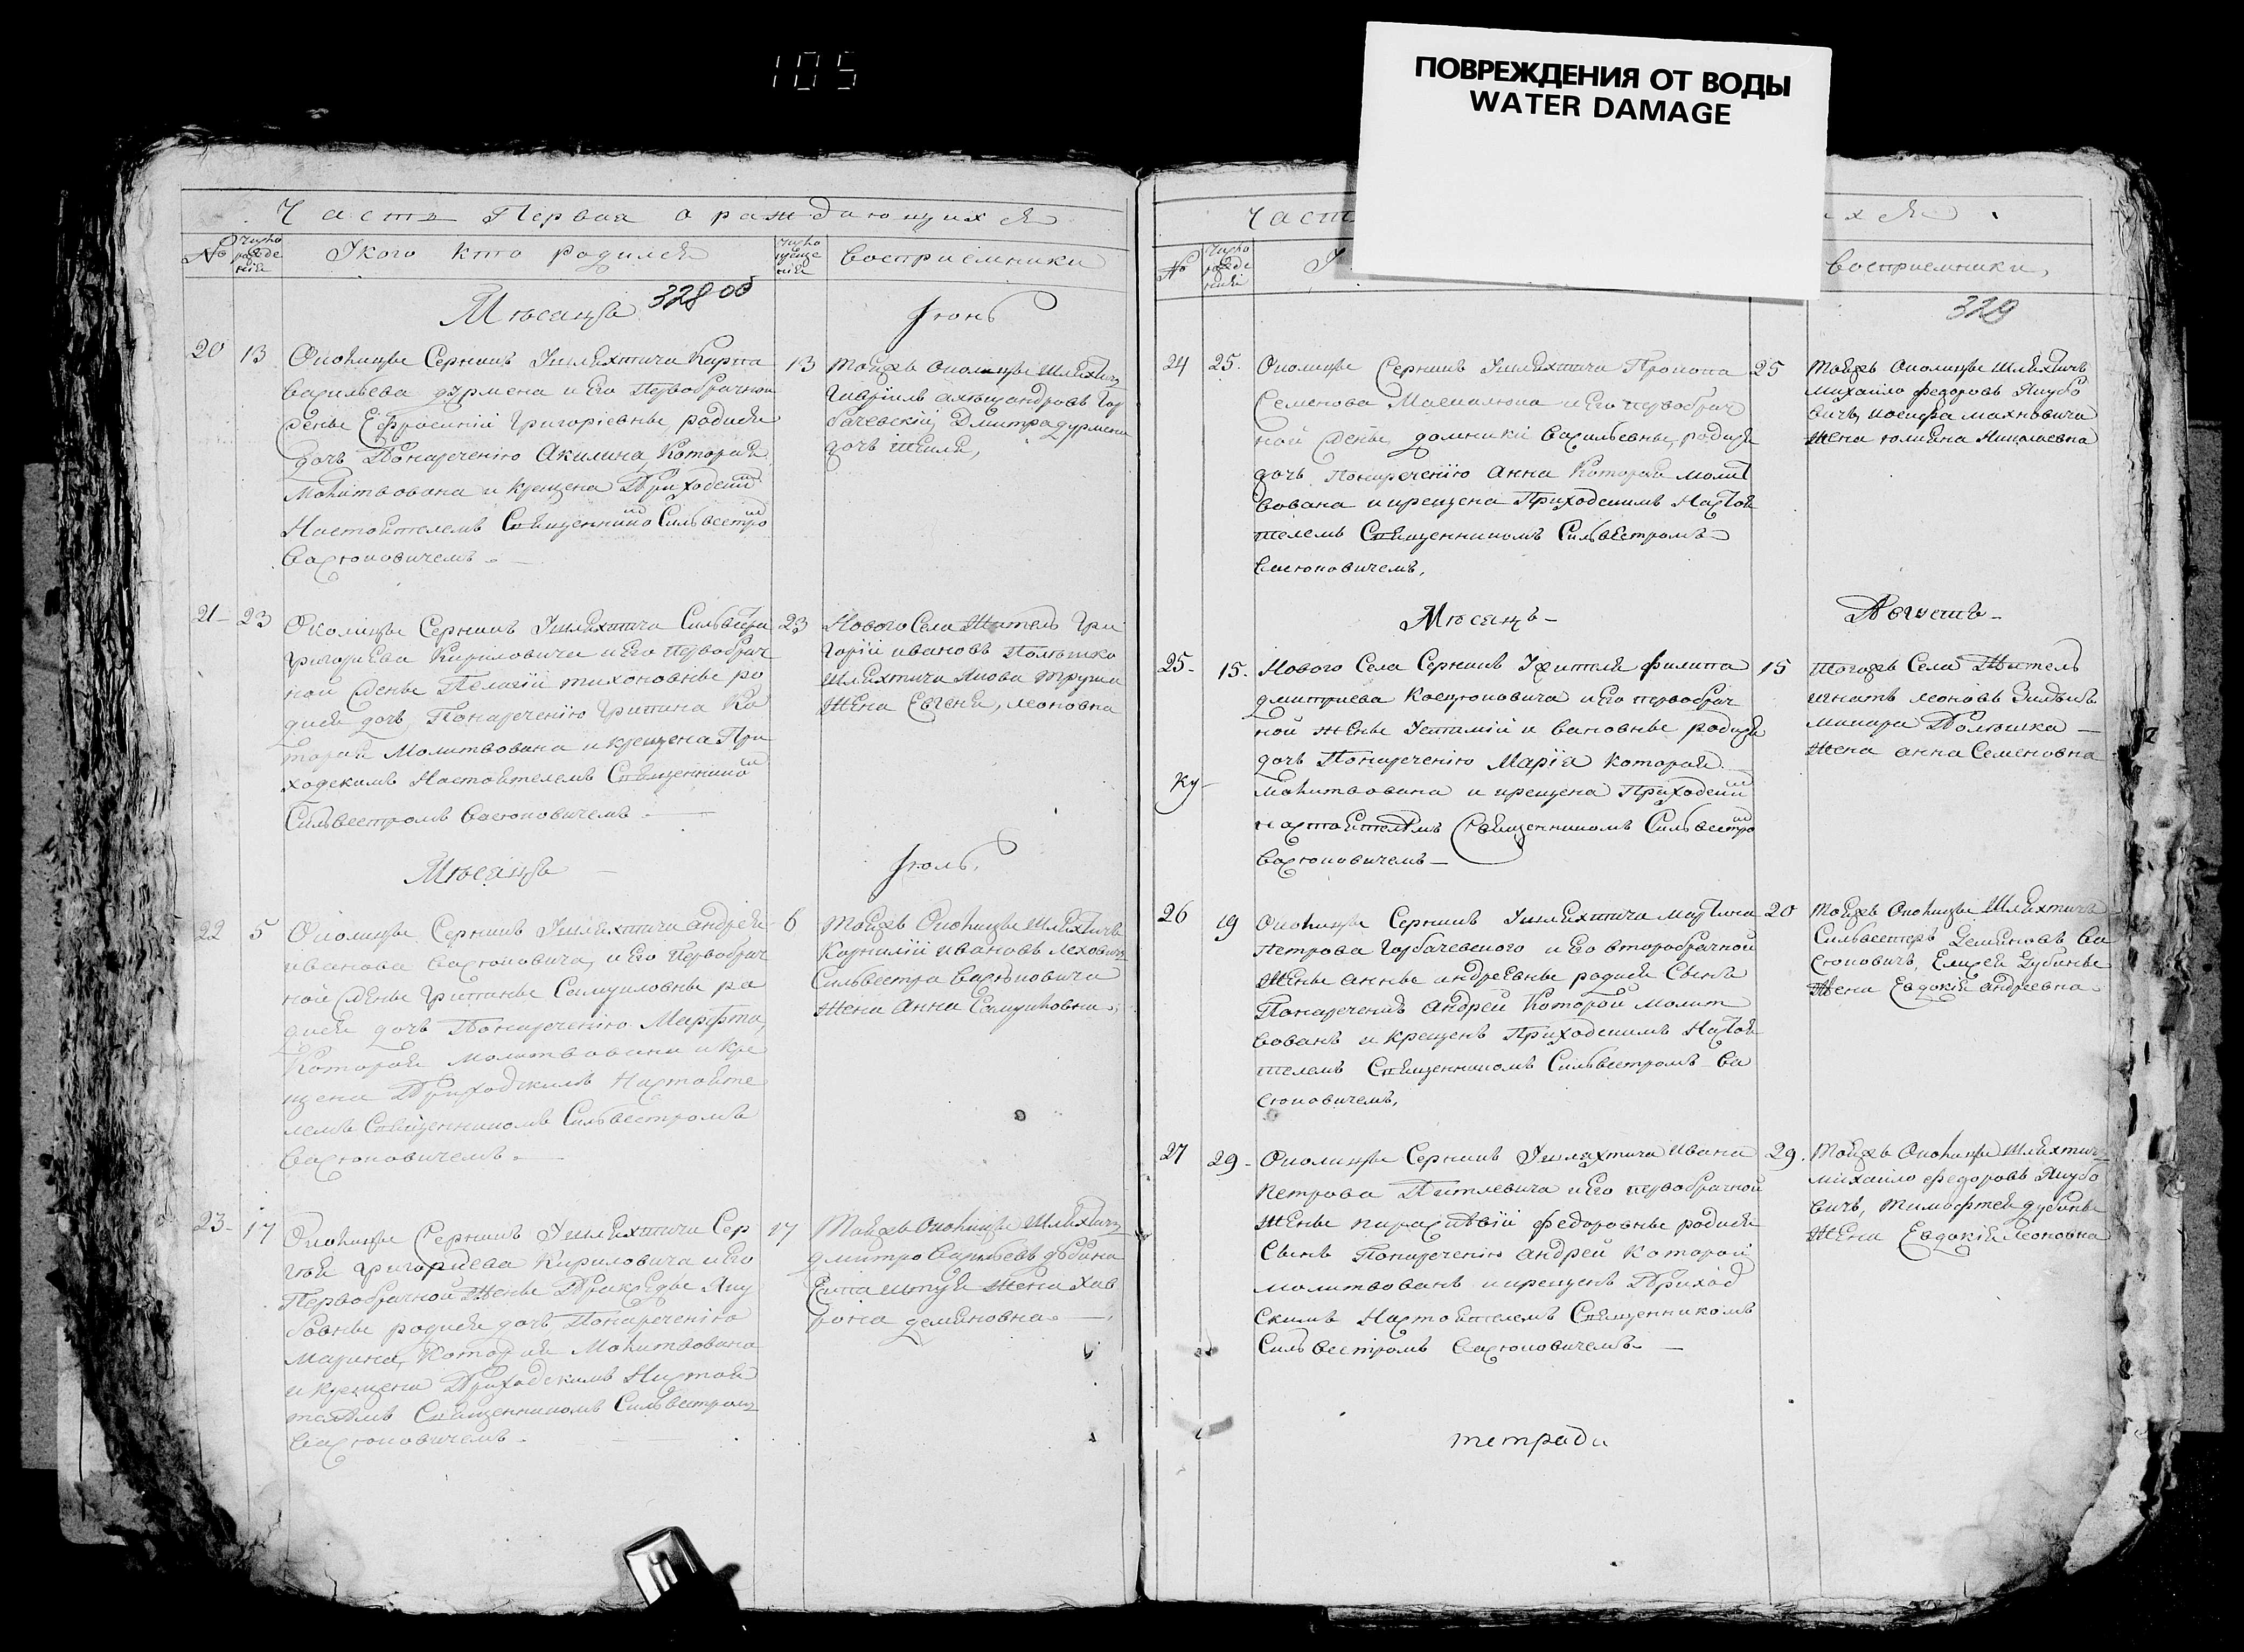 105
ПОВРЕЖДЕНИЯ ОТ ВОДЫ
WATER DAMAGE
Часть Первая о раждающихся
№ Число рожде нія
У кого кто родился
Число креще нія
Восприемники
Мѣсяца 328 об
Іюнь
20 13
Околицы Серникъ Ушляхтича Карпа
Васильева дурмена и Его Первобрачной
Женѣ Ефросиніи Григоріевнѣ родися
дочь Понареченію Акилина Которая
Молитвована и Крещена Приходским
Настоятелемъ Священником Сильвестром
Васюковичемъ
13
Тойжъ Околицы Шляхтичъ
Гавріилъ александровъ Гор
бачевскій, Дмитра дурмена
дочь
21 23
Околицы Серникъ Ушляхтича Сильвестра
Григорьева Кириловича и Его Первобрач
ной Женѣ Пелагіи тихоновнѣ ро
дися дочь, Понареченію Христина Ко
торая Молитвована и крещена При
ходскимъ Настоятелемъ Священником
Сильвестромъ Васюковичемъ
23
Нового Села Житель Гри
горій ивановъ Полюшко
Шляхтича Якова
Жена Евгения, леоновна
Мѣсяца
Іюль,
22 5
Околицы Серникъ Ушляхтича андрея
иванова Васюковича, и Его Первобрач
ной Женѣ Христинѣ Самуиловнѣ ро
дися дочь Понареченію Марфа,
Которая молитвована и кре
щена Приходскимъ Настояте
лемъ Священникомъ Сильвестромъ
Васюковичемъ
6
Тойжъ Околицы Шляхтичъ
Корнилій ивановъ леховичъ
Сильвестра Васюковича
Жена Анна Самуиловна
23 17
Околицы Серникъ Ушляхтича Сер
гея григориева Кириловича и Его
Первобрачной Женѣ Яку
бовнѣ родися дочь Понареченію
Марина, Которая Молитвована
и крещена Приходскимъ Настоя
телемъ Священникомъ Сильвестромъ
Васюковичемъ
17
Тойжъ Околицы Шляхтичъ
дмитро Васильевъ дубина
Жена Хав
рона демяновна
Част
ихся
№ Число рожде нія
У
Восприемники,
329
24 25
Околицы Серникъ Ушляхтича Прокопа
Семенова и Его первобрач
ной Женѣ домникі Васильевнѣ, родися
дочь Понареченію Анна Которая молит
вована и крещена Приходскимъ Настоя
телемъ Священникомъ Сильвестромъ
Васюковичемъ,
25
Тойжъ Околицы Шляхтичъ
Михаило федоровъ Якубо
вичъ, иосифа махновича
Жена юлияна Николаевна
Мѣсяцъ
Августъ
25 15
Нового Села Серникъ Ужителя филипа
дмитриева Васюковича и Его первобрач
ной женѣ ивановнѣ родися
дочь Понареченію Марія которая
Ку
Молитвована и крещена Приходским
настоятелемъ Священникомъ Сильвестром
Васюковичемъ
15
Тогожъ Села Житель
игнатъ леоновъ
макара Полюшка
Жена анна Семеновна
26 19
Околицы Серникъ Ушляхтича Мартина
Петрова Горбачевского и Его второбрачной
Женѣ аннѣ андреевнѣ родися Сынъ
Понареченію Андрей Которой молит
вованъ и крещенъ Приходскимъ Настоя
телемъ Священникомъ Сильвестромъ Ва
сюковичемъ,
20
Тойжъ Околицы Шляхтичъ
Сильвестеръ Демяновъ Ва
сюковичъ, Елисея Дубины
Жена Евдокія андреевна
27 29
Околицы Серникъ Ушляхтича Ивана
Петрова и Его первобрачной
Женѣ параскевіи федоровнѣ родися
Сынъ Понареченію андрей Которой
молитвованъ и крещенъ Приход
скимъ Настоятелемъ Священникомъ
Сильвестромъ Васюковичемъ
29
Тойжъ Околицы Шляхтичъ
михаило федоровъ Якубо
вичъ, тимофтея дубины
Жена Евдокія Леоновна
тетради